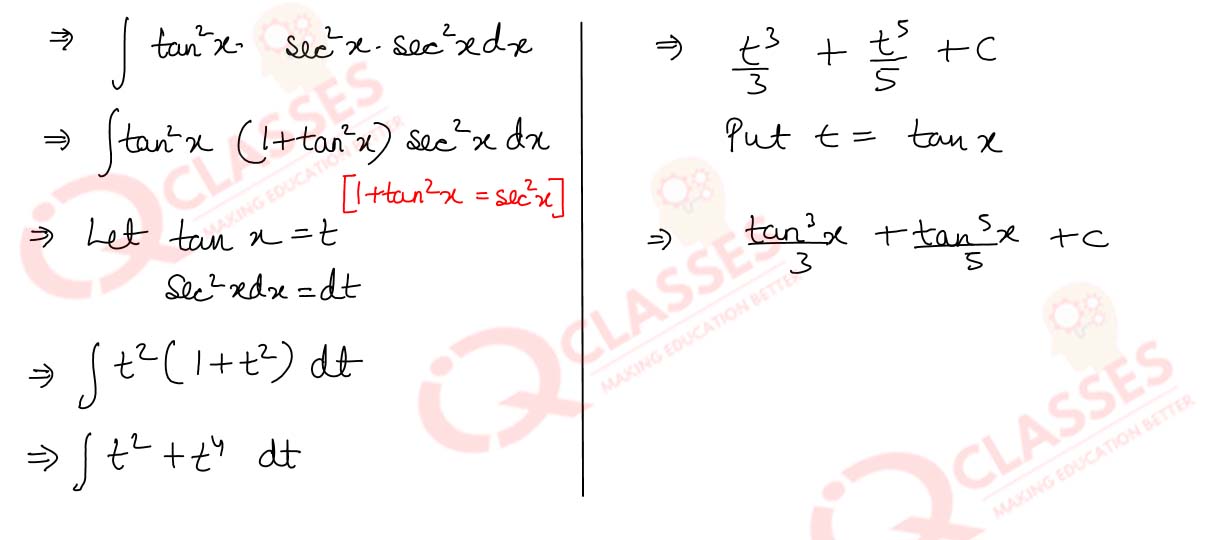 ⇒ ∫ tan²x. sec²x. sec²x dx
⇒ ∫tan²x (1+tan²x) sec²x dx
[1+tan²x = sec²x]
⇒ Let tan x = t
sec²xdx = dt
⇒ ∫ t² (1+t²) dt
⇒ ∫ t² + t⁴ dt
⇒ t³/3 + t⁵/5 + C
Put t = tan x
⇒ tan³x/3 + tan⁵x/5 + c
IQ CLASSES
MAKING EDUCATION BETTER
IQ CLASSES
MAKING EDUCATION BETTER
IQ CLASSES
MAKING EDUCATION BETTER